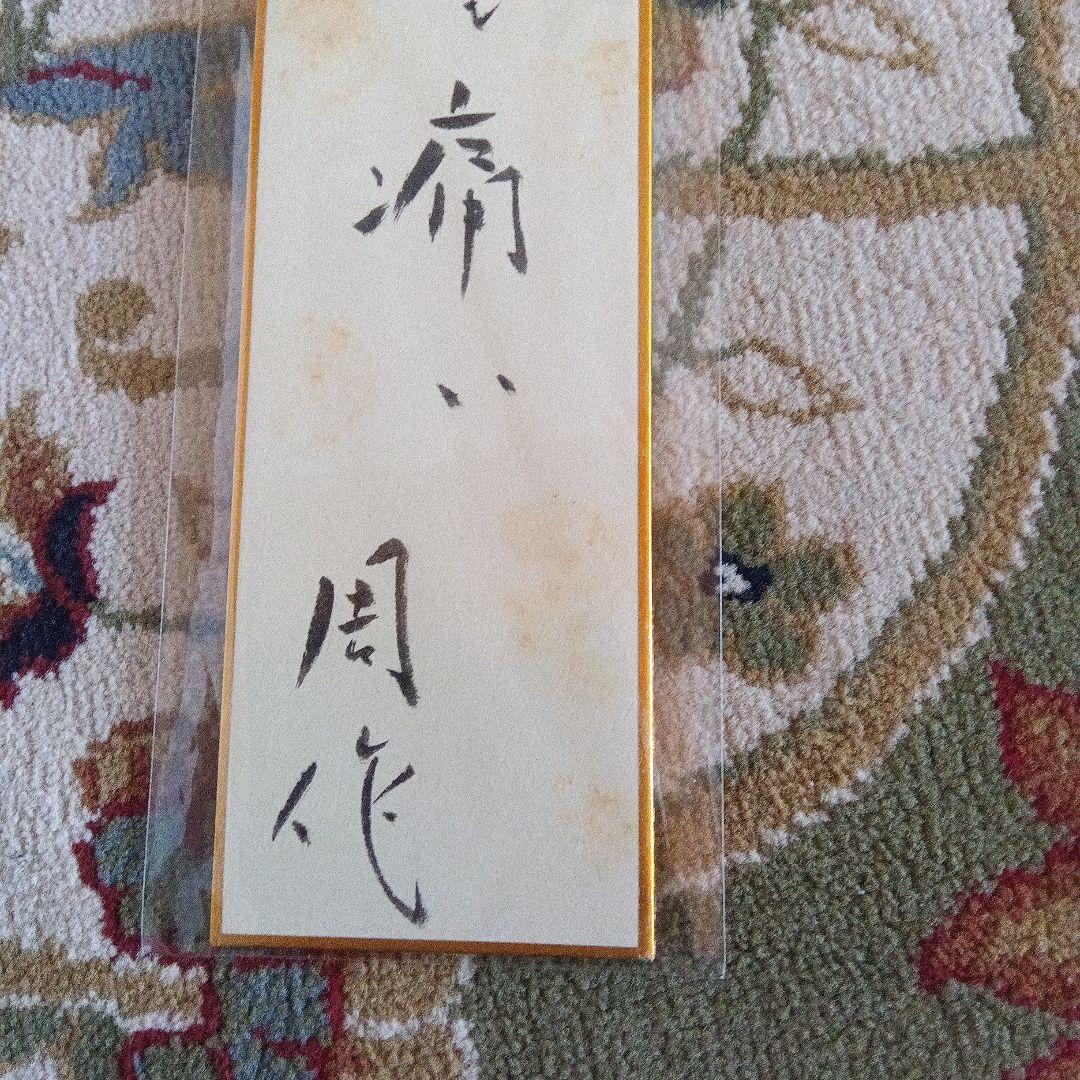 痛い
周作